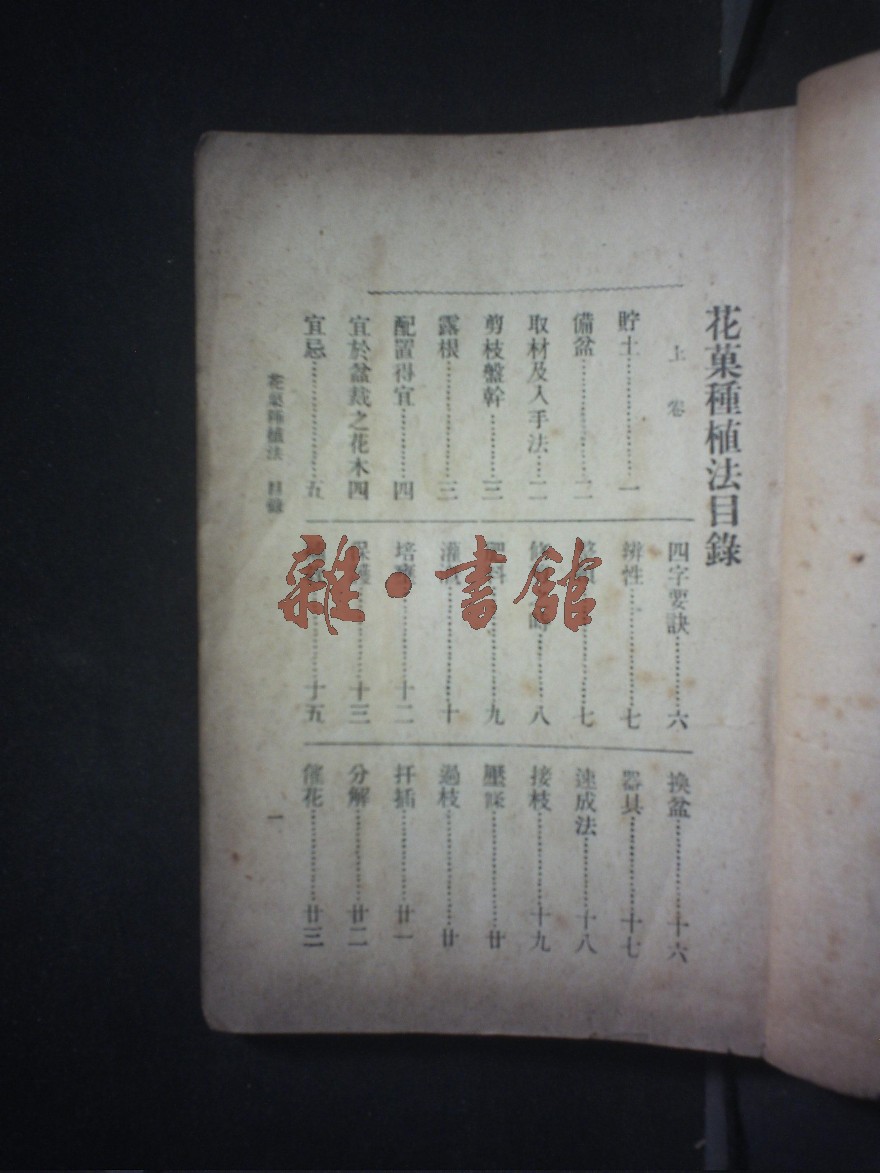 花菓種植法目錄
上卷
貯土……一
備盆……二
取材及入手法……二
剪枝盤幹……三
露根……三
配置得宜……四
宜於盆栽之花木四
宜忌……五
四字要訣……六
辨性……七
……七
……八
……九
灌……十
培……十二
保護……十三
……十五
換盆……十六
器具……十七
速成法……十八
接枝……十九
壓條……廿
過枝……廿
扦插……廿一
分解……廿二
催花……廿三
花菓種植法 目錄
一
雜·書館